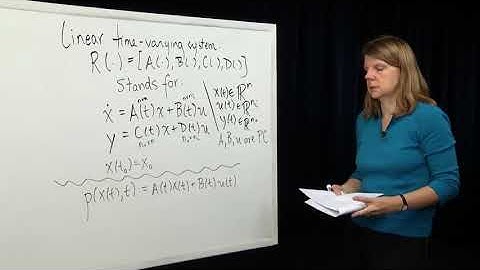 Linear time-varying system.
R(·) = [A(·), B(·), C(·), D(·)]
Stands for:
ẋ = A(t)x + B(t)u
y = C(t)x + D(t)u
x(t₀) = x₀
x(t) ∈ ℝⁿ
u(t) ∈ ℝⁿⁱ
y(t) ∈ ℝⁿᵒ
A, B, u are PC
p(x(t), t) = A(t)x(t) + B(t)u(t)